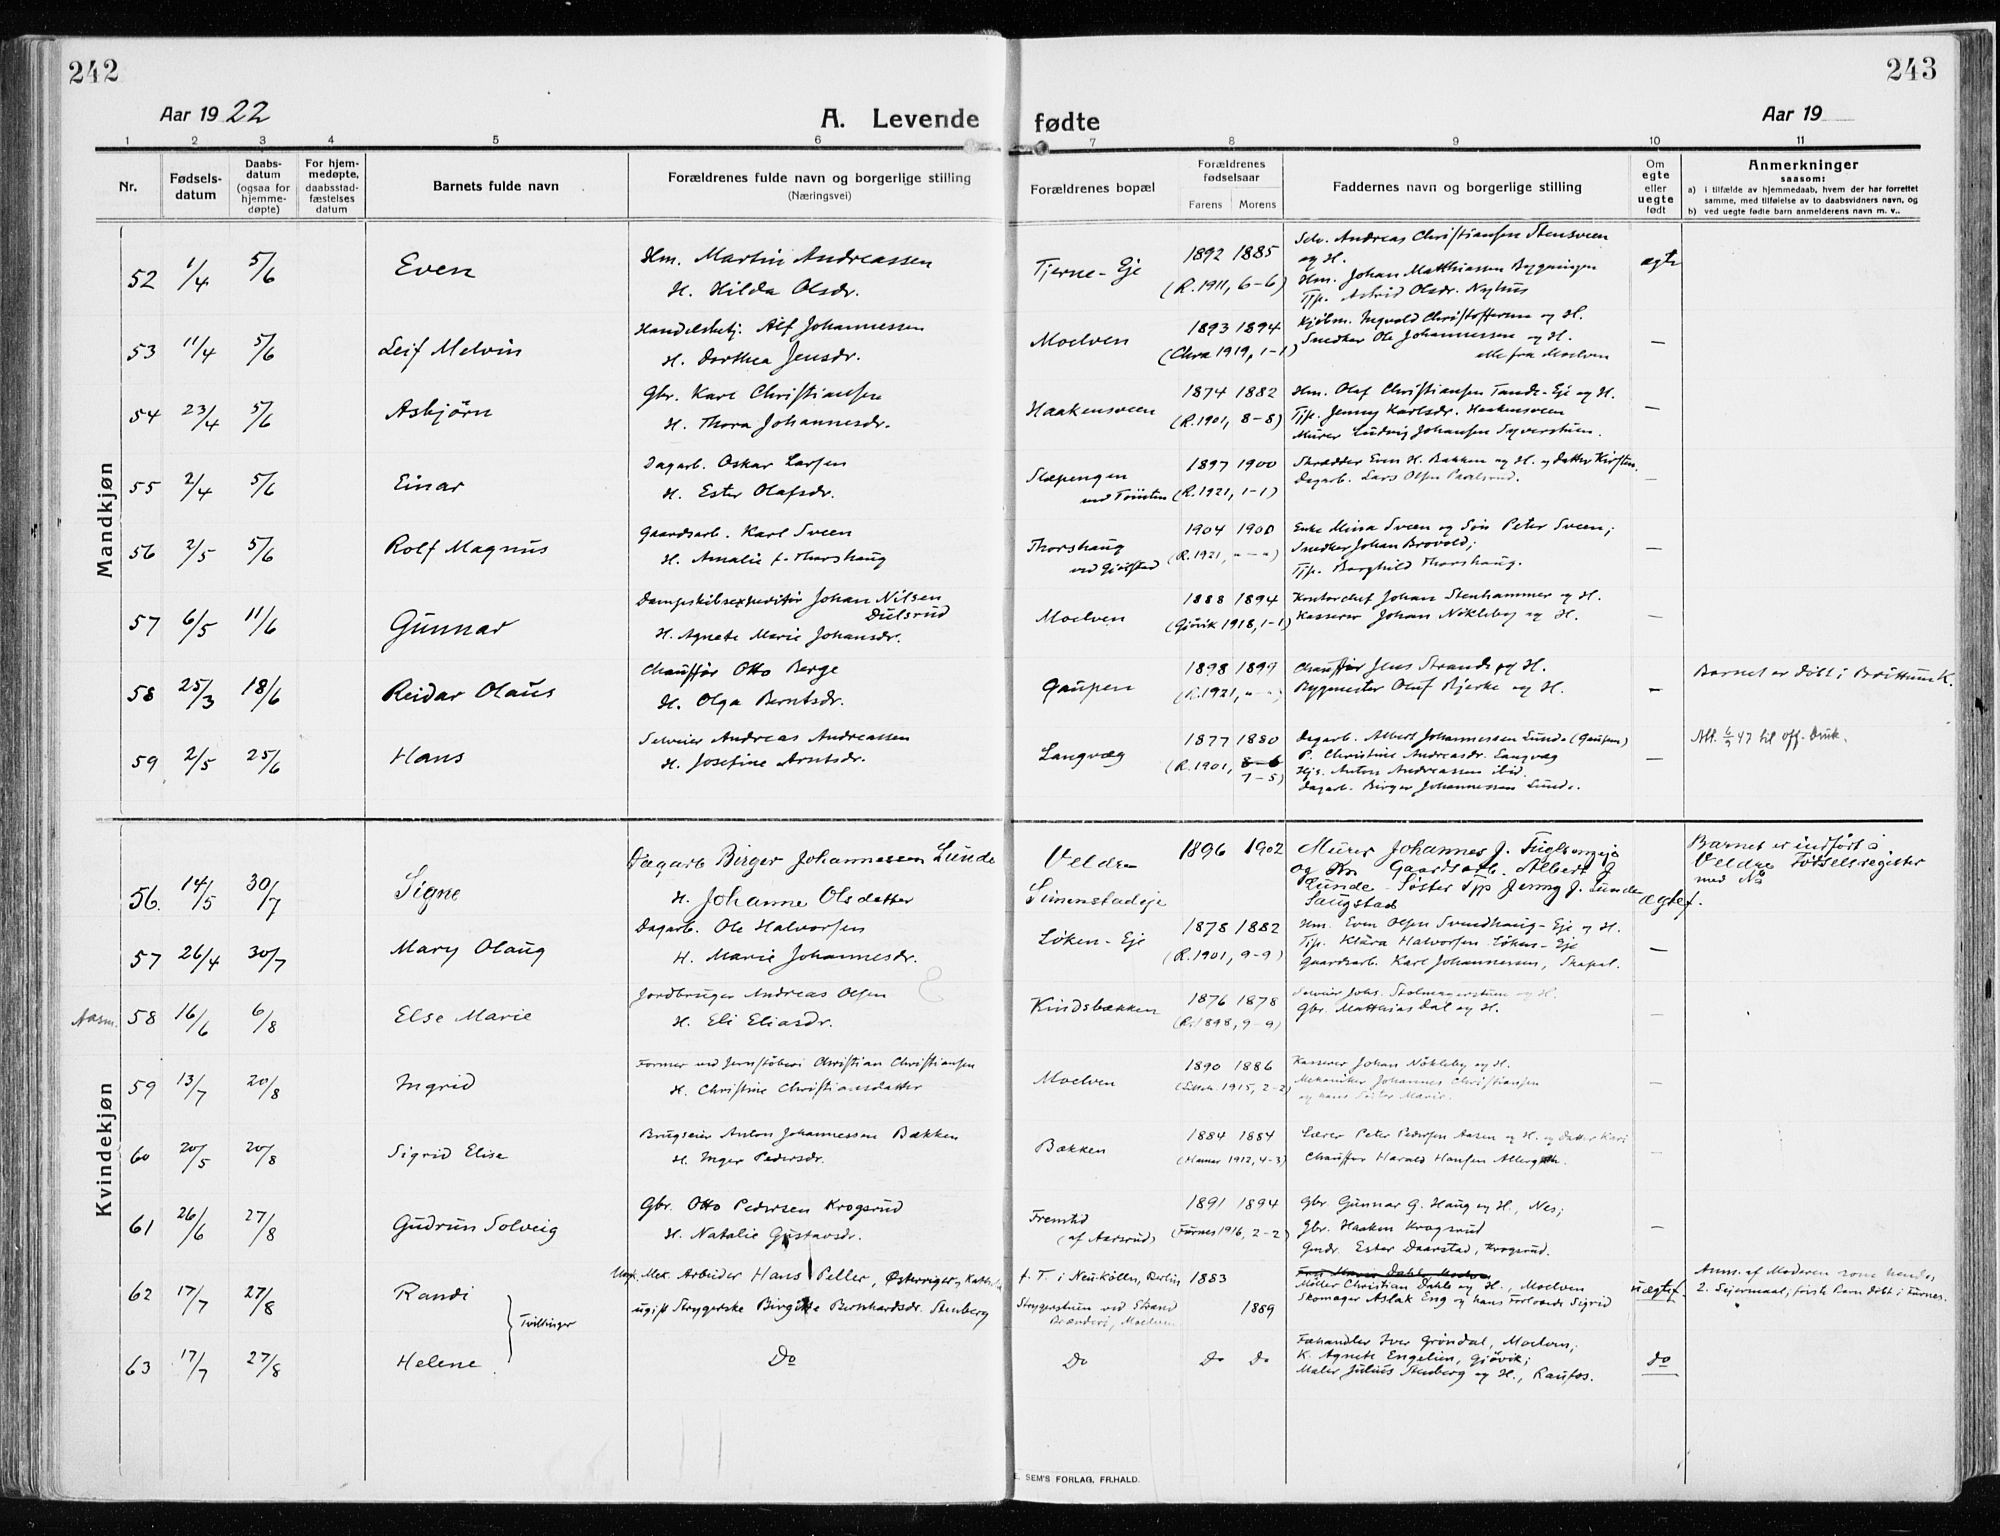 242
243
Aar 1922
A. Levende fødte
Aar 19
1 2 3 4 5 6 7 8 9 10 11
Nr.
Fødsels-
datum
Daabs-
datum
(ogsaa for
hjemme-
døpte)
For hjem-
medøpte,
daabsstad-
fæstelses
datum
Barnets fulde navn
Forældrenes fulde navn og borgerlige stilling
(Næringsvei)
Forældrenes bopæl
Forældrenes
fødselsaar
Farens Morens
Faddernes navn og borgerlige stilling
Om
egte
eller
uegte
født
Anmerkninger
saasom:
a) i tilfælde av hjemmedaab, hvem der har forrettet
samme, med tilføielse av to daabsvidners navn, og
b) ved uegte fødte barn anmelderens navn m. v..
Mandkjøn
52 1/4 5/6 Even
Hm. Martin Andreassen
H. Hilda Olsdr.
Tjerne-Eje
1892 1885
(R. 1911, 6-6)
Selv. Andreas Christiansen Stensveen
og H.
Hm. Johan Matthiassen Bygningen
Tjp. Astrid Olsdr. Nyhus
ægte
53 11/4 5/6 Leif Melvin
Handelsbetj. Alf Johannessen
H. Dorthea Jensdr.
Moelven
1893 1894
(Chra 1919, 1-1)
Kjølm. Ingvald Christoffersen og H.
Snedker Ole Johannessen og H.
alle fra Moelven
—
54 23/4 5/6 Asbjørn
Gbr. Karl Christiansen
H. Thora Johannesdr.
Haakensveen
1874 1882
(R. 1901, 8-8)
Hm. Olaf Christiansen Tande-Eje og H.
Tjp. Jenny Karlsdr. Haakensveen
Murer Ludvig Johansen Syverstuen.
—
55 2/4 5/6 Einar
Dagarb. Oskar Larsen
H. Ester Olafsdr.
Slæpengen
1897 1900
(R. 1921, 1-1)
Skrædder Even H. Bakken og H. og datter Kirsten.
Dagarb. Lars Olsen
—
56 2/5 5/6 Rolf Magnus
Gaardsarb. Karl Sveen
H. Amalie f. Thorshaug
Thorshaug
1904 1900
(R. 1921, „-„)
Enke Mina Sveen og Søn Peter Sveen;
Snedker Johan Brovold;
Tjp. Borghild Thorshaug.
—
57 6/5 11/6 Gunnar
Dampskibsexpeditør Johan Nilsen
Dulsrud
H. Agnete Marie Johansdr.
Moelven
1888 1894
(Gjøvik 1918, 1-1)
Kontorchef Johan Stenhammer og H.
Kasserer Johan Nökleby og H.
—
58 25/3 18/6 Reidar Olaus
Chauffør Otto Berge
H. Olga Berntsdr.
Gaupen
1898 1899
(R. 1921, „-„)
Chauffør Jens Strand og H.
Bygmester Oluf Bjerke og H.
—
Barnet er døbt i Brøttum K.
59 2/5 25/6 Hans
Selveier Andreas Andreassen
H. Josefine Arntsdr.
Langvæg
1877 1880
(R. 1901, 8-6
7-5)
Dagarb. Albert Johannessen Lunde (Gaupen)
P. Christine Andreasdr. Langvæg
Hjs. Anton Andreassen ibid.
Dagarb. Birger Johannessen Lunde.
—
Att. 6/9 47 til off. bruk.
Kvindekjøn
56. 14/5 30/7 Signe
Dagarb Birger Johannessen Lunde
H. Johanne Olsdatter
Veldre
Simenstadeje
1896 1902
Murer Johannes J. Fuglsengeje
og Kn Gaardsarb. Albert J
Lunde - Søster Tjp Jenny J. Lunde
Saugstad
ægtef.
Barnet er indført i
Veldre Fødselsregister
med No
57 26/4 30/7 Mary Olaug
Dagarb. Ole Halvorsen
H. Marie Johannesdr.
Løken-Eje
1878 1882
(R. 1901, 9-9)
Hm. Even Olsen Svendhaug-Eje og H.
Tjp. Klara Halvorsen Løken-Eje
Gaardsarb. Karl Johannessen, Skapal.
—
Aasm. 58 16/6 6/8 Else Marie
Jordbruger Andreas Olsen
H. Eli Eliasdr.
Kindsbækken
1876 1878
(R. 1898, 9-9)
Selveier Johs. Stolmagerstuen og H.
Gbr. Matthias Dal og H.
—
59 13/7 20/8 Ingrid
Former ved Jernstøberi Christian Christiansen
H. Christine Christiansdatter
Moelven
1890 1886
(Lilleh. 1915, 2-2)
Kasserer Johan Nökleby og H.
Mekaniker Johannes Christiansen
og hans Søster Marie.
—
60 20/5 20/8 Sigrid Elise
Brugseier Anton Johannessen Bækken
H. Inger Pedersdr.
Bækken
1884 1884
(Hamar 1912, 4-3)
Lærer Peter Pedersen Aasen og H. og datter Kari
Chauffør Harald Hansen
—
61 26/6 27/8 Gudrun Solveig
Gbr. Otto Pedersen Krogsrud
H. Natalie Gustavsdr.
Fremtid
(af Aarsrud)
1891 1894
(Furnes 1916, 2-2)
Gbr. Gunnar G. Haug og H., Nes;
Gbr. Haaken Krogsrud
Gmdr. Ester Daarstad, Krogsrud.
—
62 17/7 27/8 Randi
Tvillinger
Ugf. Mek. Arbeider Hans Peller, Østerriger,
ugift Strygerske Birgitte Bernhardsdr. Stenberg
f. T. i Neukölln, Berlin
Strygerstuen ved Strand
Brænderi, Moelven
1883
1889
Fru Marie Dahl, Moelven
Møller Christian Dahl og H., Moelven
Skomager Aslak Eng og hans Forlovede Sigrid
uægtef.
Anm. af Moderen som hendes
2. Leiermaal, første Barn døbt i Furnes.
63 17/7 27/8 Helene.
Do
Do
Do Do
Fæhandler Iver Grøndal, Moelven;
K. Agnete Engelien, Gjøvik;
Maler Julius Stenberg og H., Raufos.
do
E. SEM'S FORLAG, FR.HALD.